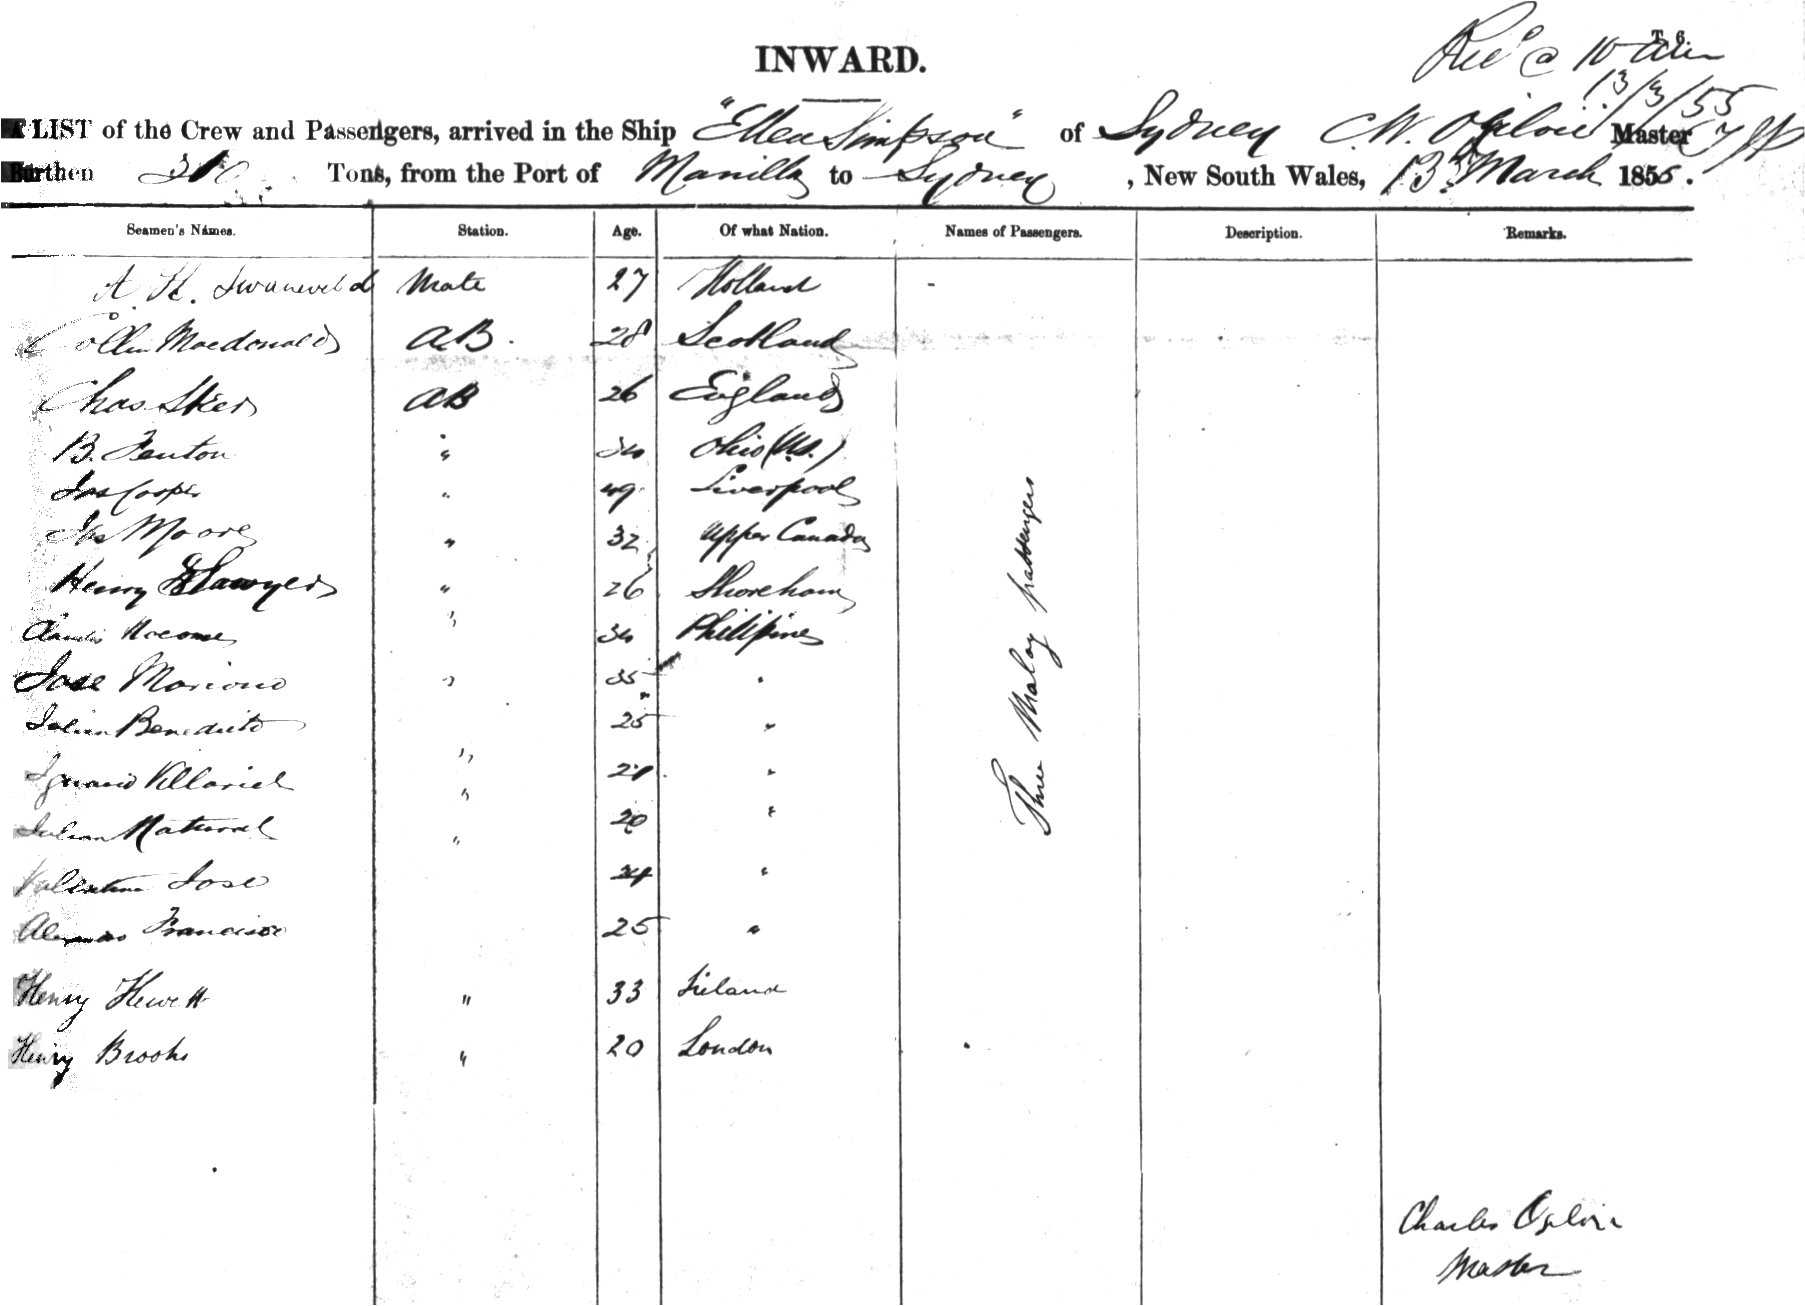 T 6.
Rec'd @ 10 am
13/3/55
INWARD.
A LIST of the Crew and Passengers, arrived in the Ship "Ellen Simpson" of Sydney C. W. Ogilvie Master
Burthen Tons, from the Port of Manilla to Sydney, New South Wales, 13th March 1855.
Seamen's Names. Station. Age. Of what Nation. Names of Passengers. Description. Remarks.
A. H. Swaneveld Mate 27 Holland -
Collin Macdonald AB. 28 Scotland
Chas AB 26 England
B. Fenton " 34 Ohio (U.S.)
Jas Cooper " 49 Liverpool
Jas Moore " 32 Upper Canada
Henry Sawyer " 26 Shoreham
" 34 Philipines
Jose Mariano " 35 "
Julian Benedicto 25 "
Ignacio Villariel " "
Julian Natural " 20 "
Valentine Jose 24 "
Francisco 25 "
Henry Hewett " 33 Ireland
Henry Brooks " 20 London
Three Malay passengers
Charles Ogilvie
Master